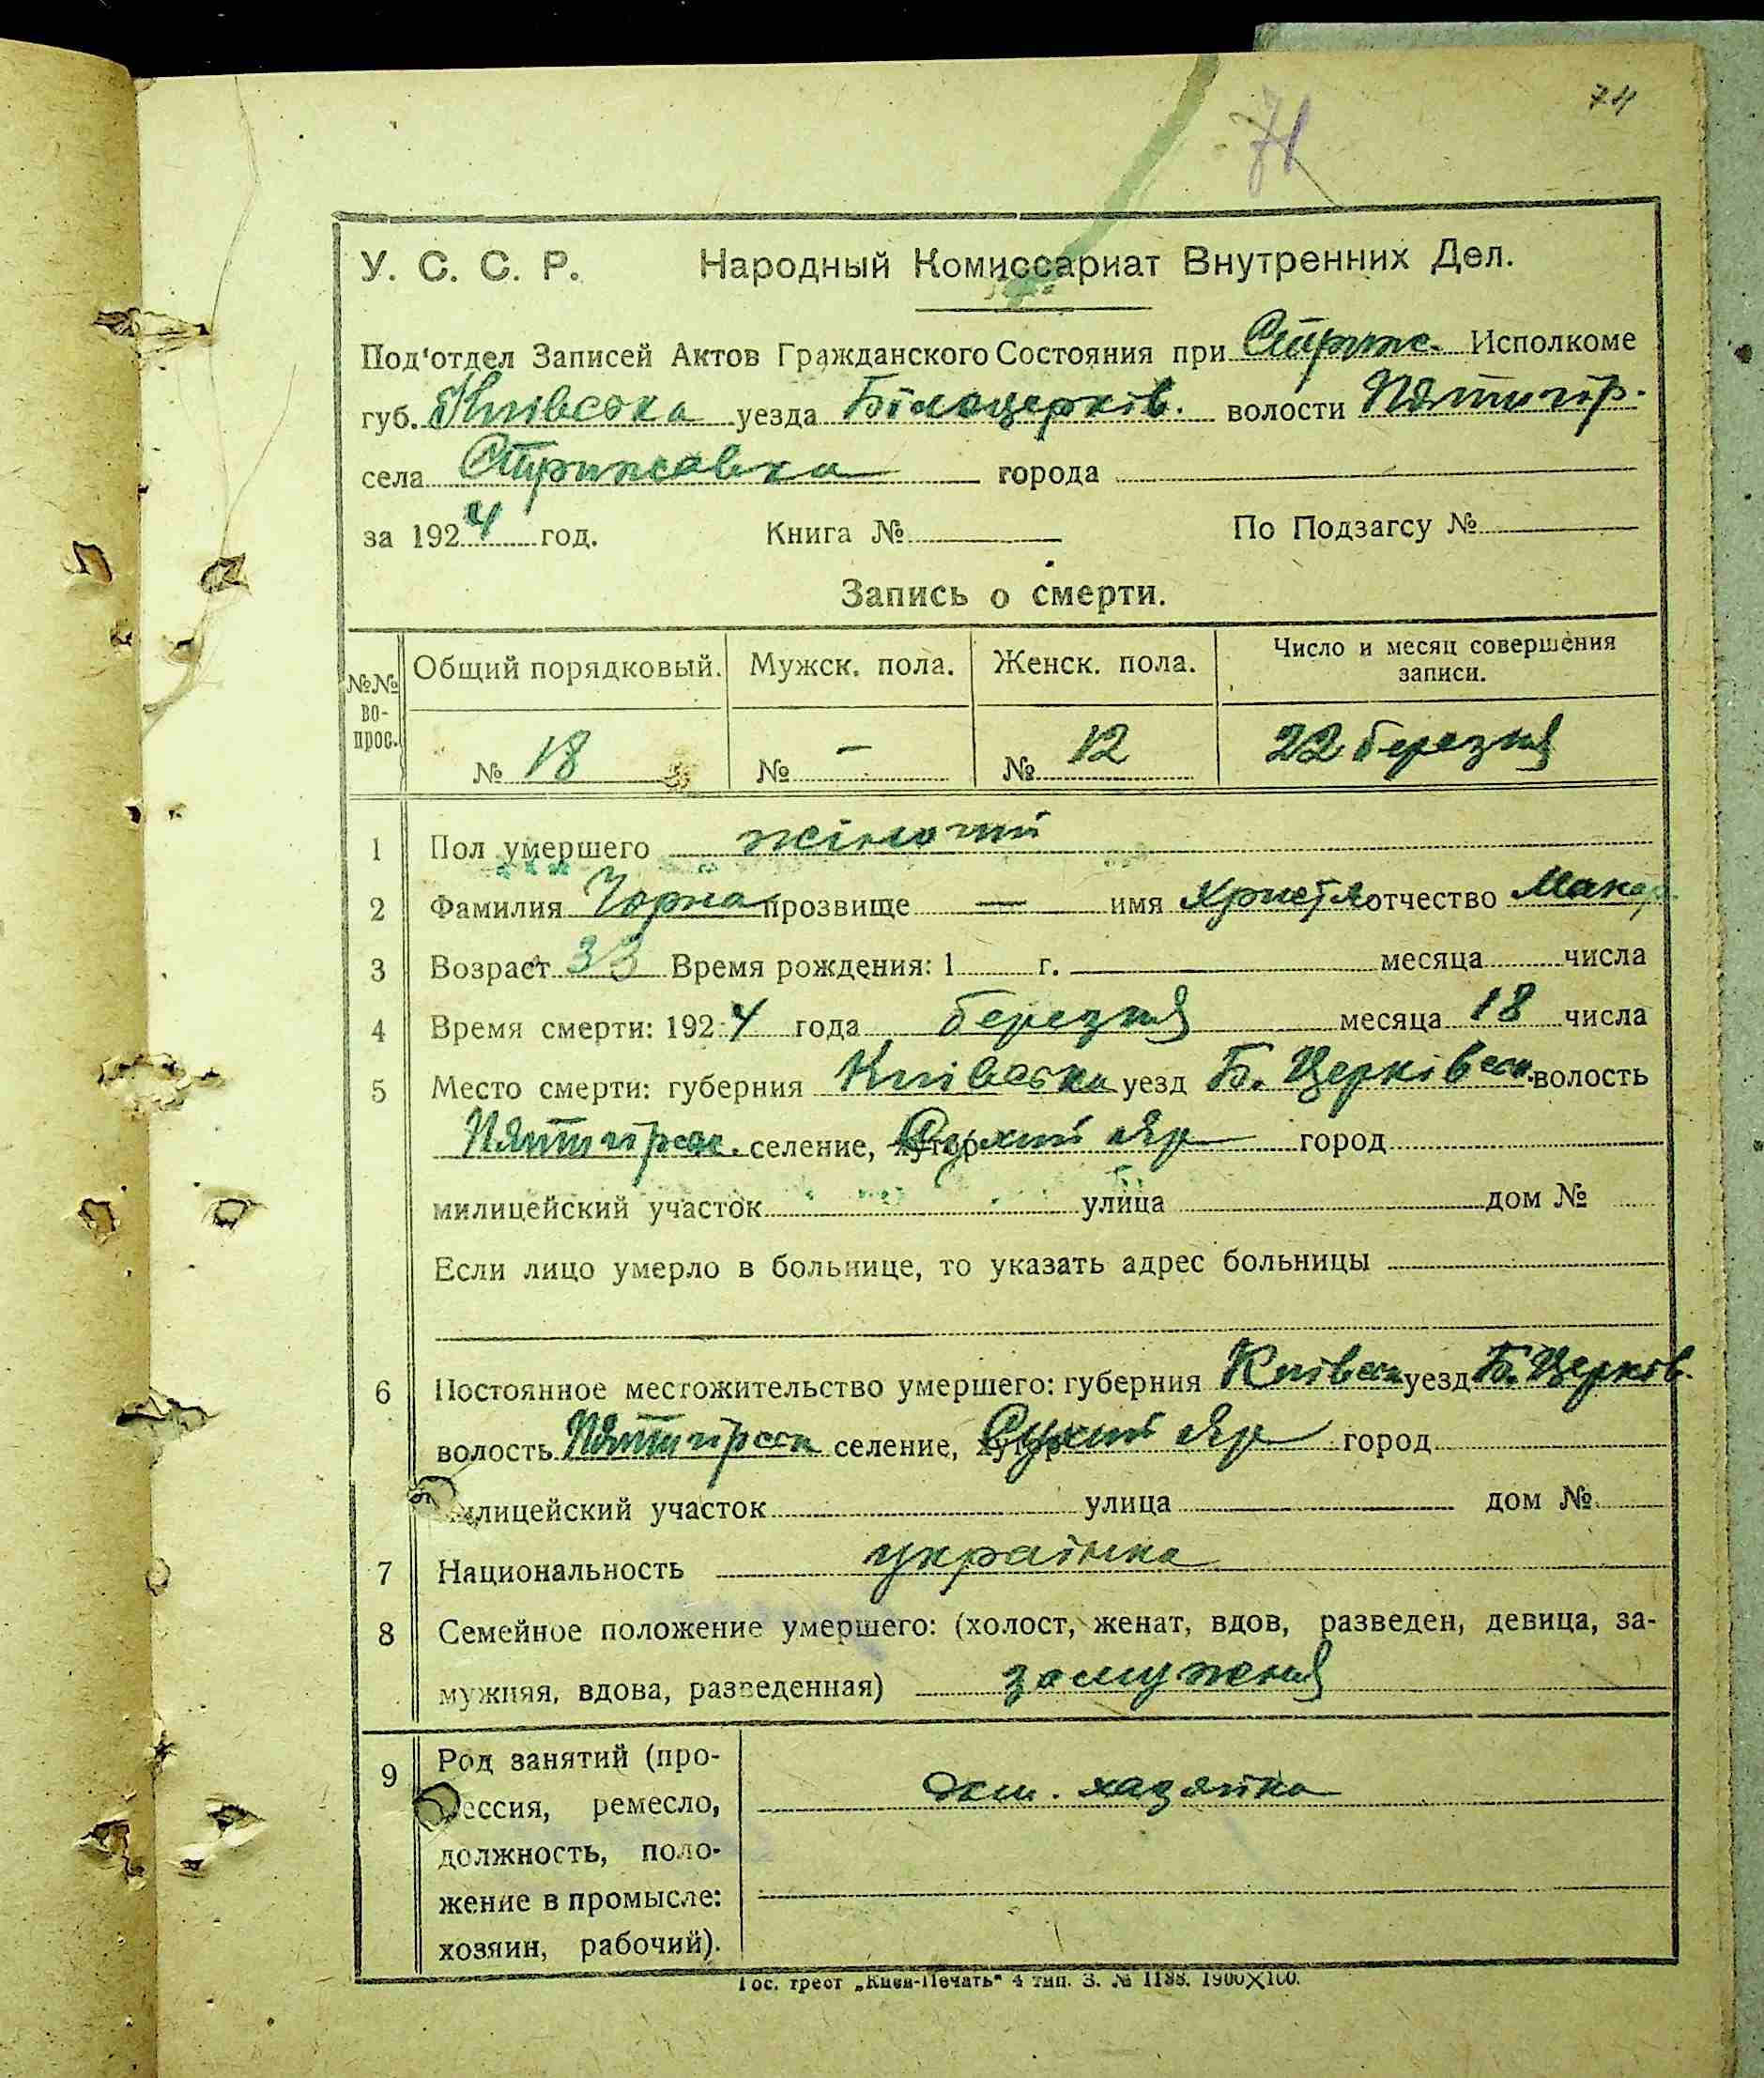 74
71
У. С. С. Р. Народный Комиссариат Внутренних Дел.
Под'отдел Записей Актов Гражданского Состояния при Стриж. Исполкоме
губ. Київська уезда Білоцерків. волости Пятигір.
села Стрижавка города
за 1924 год. Книга № По Подзагсу №
Запись о смерти.
№№ вопрос. Общий порядковый. Мужск. пола. Женск. пола. Число и месяц совершения записи.
№ 18 № — № 12 22 березня
1 Пол умершего жіночий
2 Фамилия Чорна прозвище — имя Христя отчество Макар
3 Возраст 33 Время рождения: 1 г. месяца числа
4 Время смерти: 1924 года березня месяца 18 числа
5 Место смерти: губерния Київська уезд Б. Церківськ. волость
Пятигірськ. селение, хутор Сухий Яр город
милицейский участок улица дом №
Если лицо умерло в больнице, то указать адрес больницы
6 Постоянное местожительство умершего: губерния Київськ уезд Б. Церків.
волость Пятигірськ селение, хутор Сухий Яр город
милицейский участок улица дом №
7 Национальность українка
8 Семейное положение умершего: (холост, женат, вдов, разведен, девица, за-
мужняя, вдова, разведенная) замужня
9 Род занятий (про-
фессия, ремесло, дом. хазяйка
должность, поло-
жение в промысле:
хозяин, рабочий).
Гос. трест „Киев-Печать" 4 тип. З. № 1188. 1900X100.